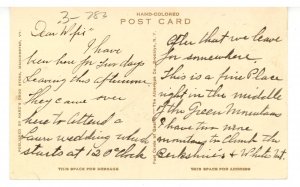 3-783
HAND-COLORED
POST CARD
Dear Wife
I have
been here for two days
Leaving this afternoon
They came over
here to Attend a
Lawn wedding which
starts at 12 O'Clock
After that we leave
for somewhere.
This is a fine Place
right in the middle
of the Green Mountains
I have two more
mountains to Climb the
Berkshires & White Mt.
THIS SPACE FOR MESSAGE
THIS SPACE FOR ADDRESS